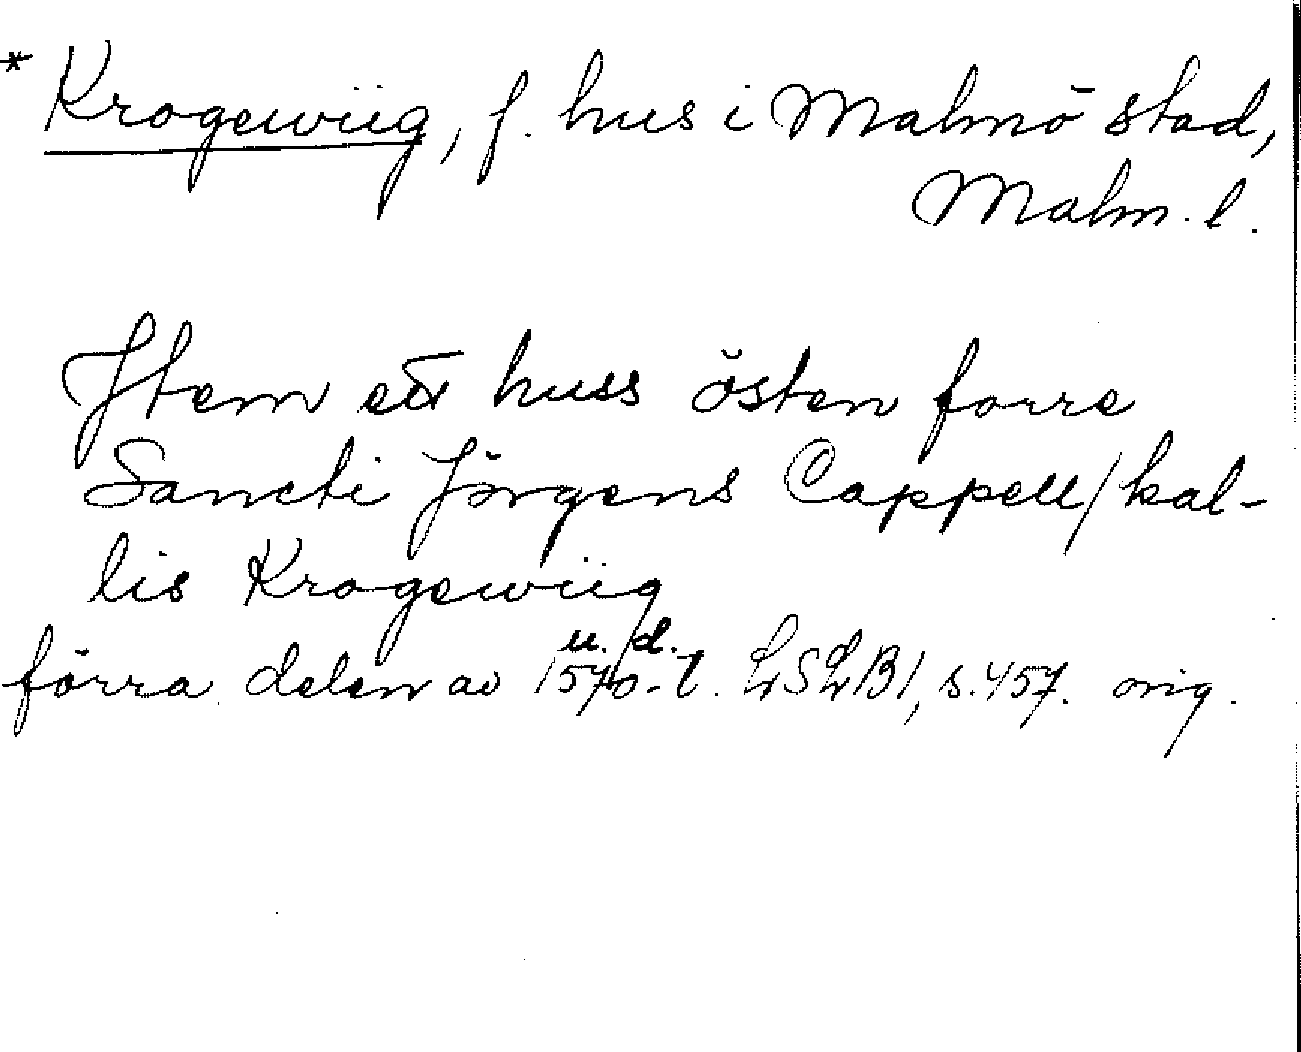 * Krogewiig, f. hus i Malmö stad,
Malm. l.
Jtem ett huss östen forre
Sancti Jörgens Cappell/ kal-
lis Krogewiig
u. d.
förra delen av 1570-t. LSLB1, s. 457. orig.